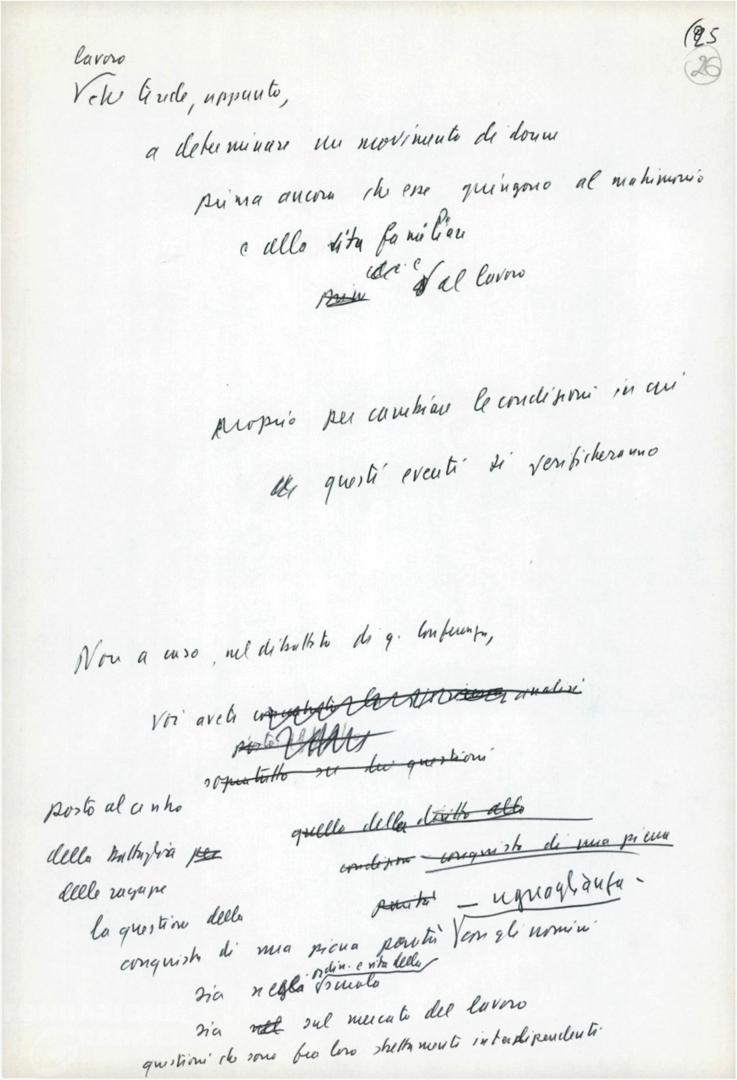 25
26
lavoro
V che tende, appunto,
a determinare un movimento di donne
prima ancora che esse giungono al matrimonio
e alla vita familiare
e al lavoro
proprio per cambiare le condizioni in cui
questi eventi si verificheranno
Non a caso, nel dibattito di q. Conferenza,
voi avete analisi
posto
soprattutto su due questioni
posto al centro
quella della diritto alla
della battaglia per
condizion - conquista di una piena
delle ragazze
parità - uguaglianza -
la questione della
conquista di una piena parità con gli uomini
ordin. e vita della
sia negli scuola
sia nel sul mercato del lavoro
questioni che sono fra loro strettamente interdipendenti